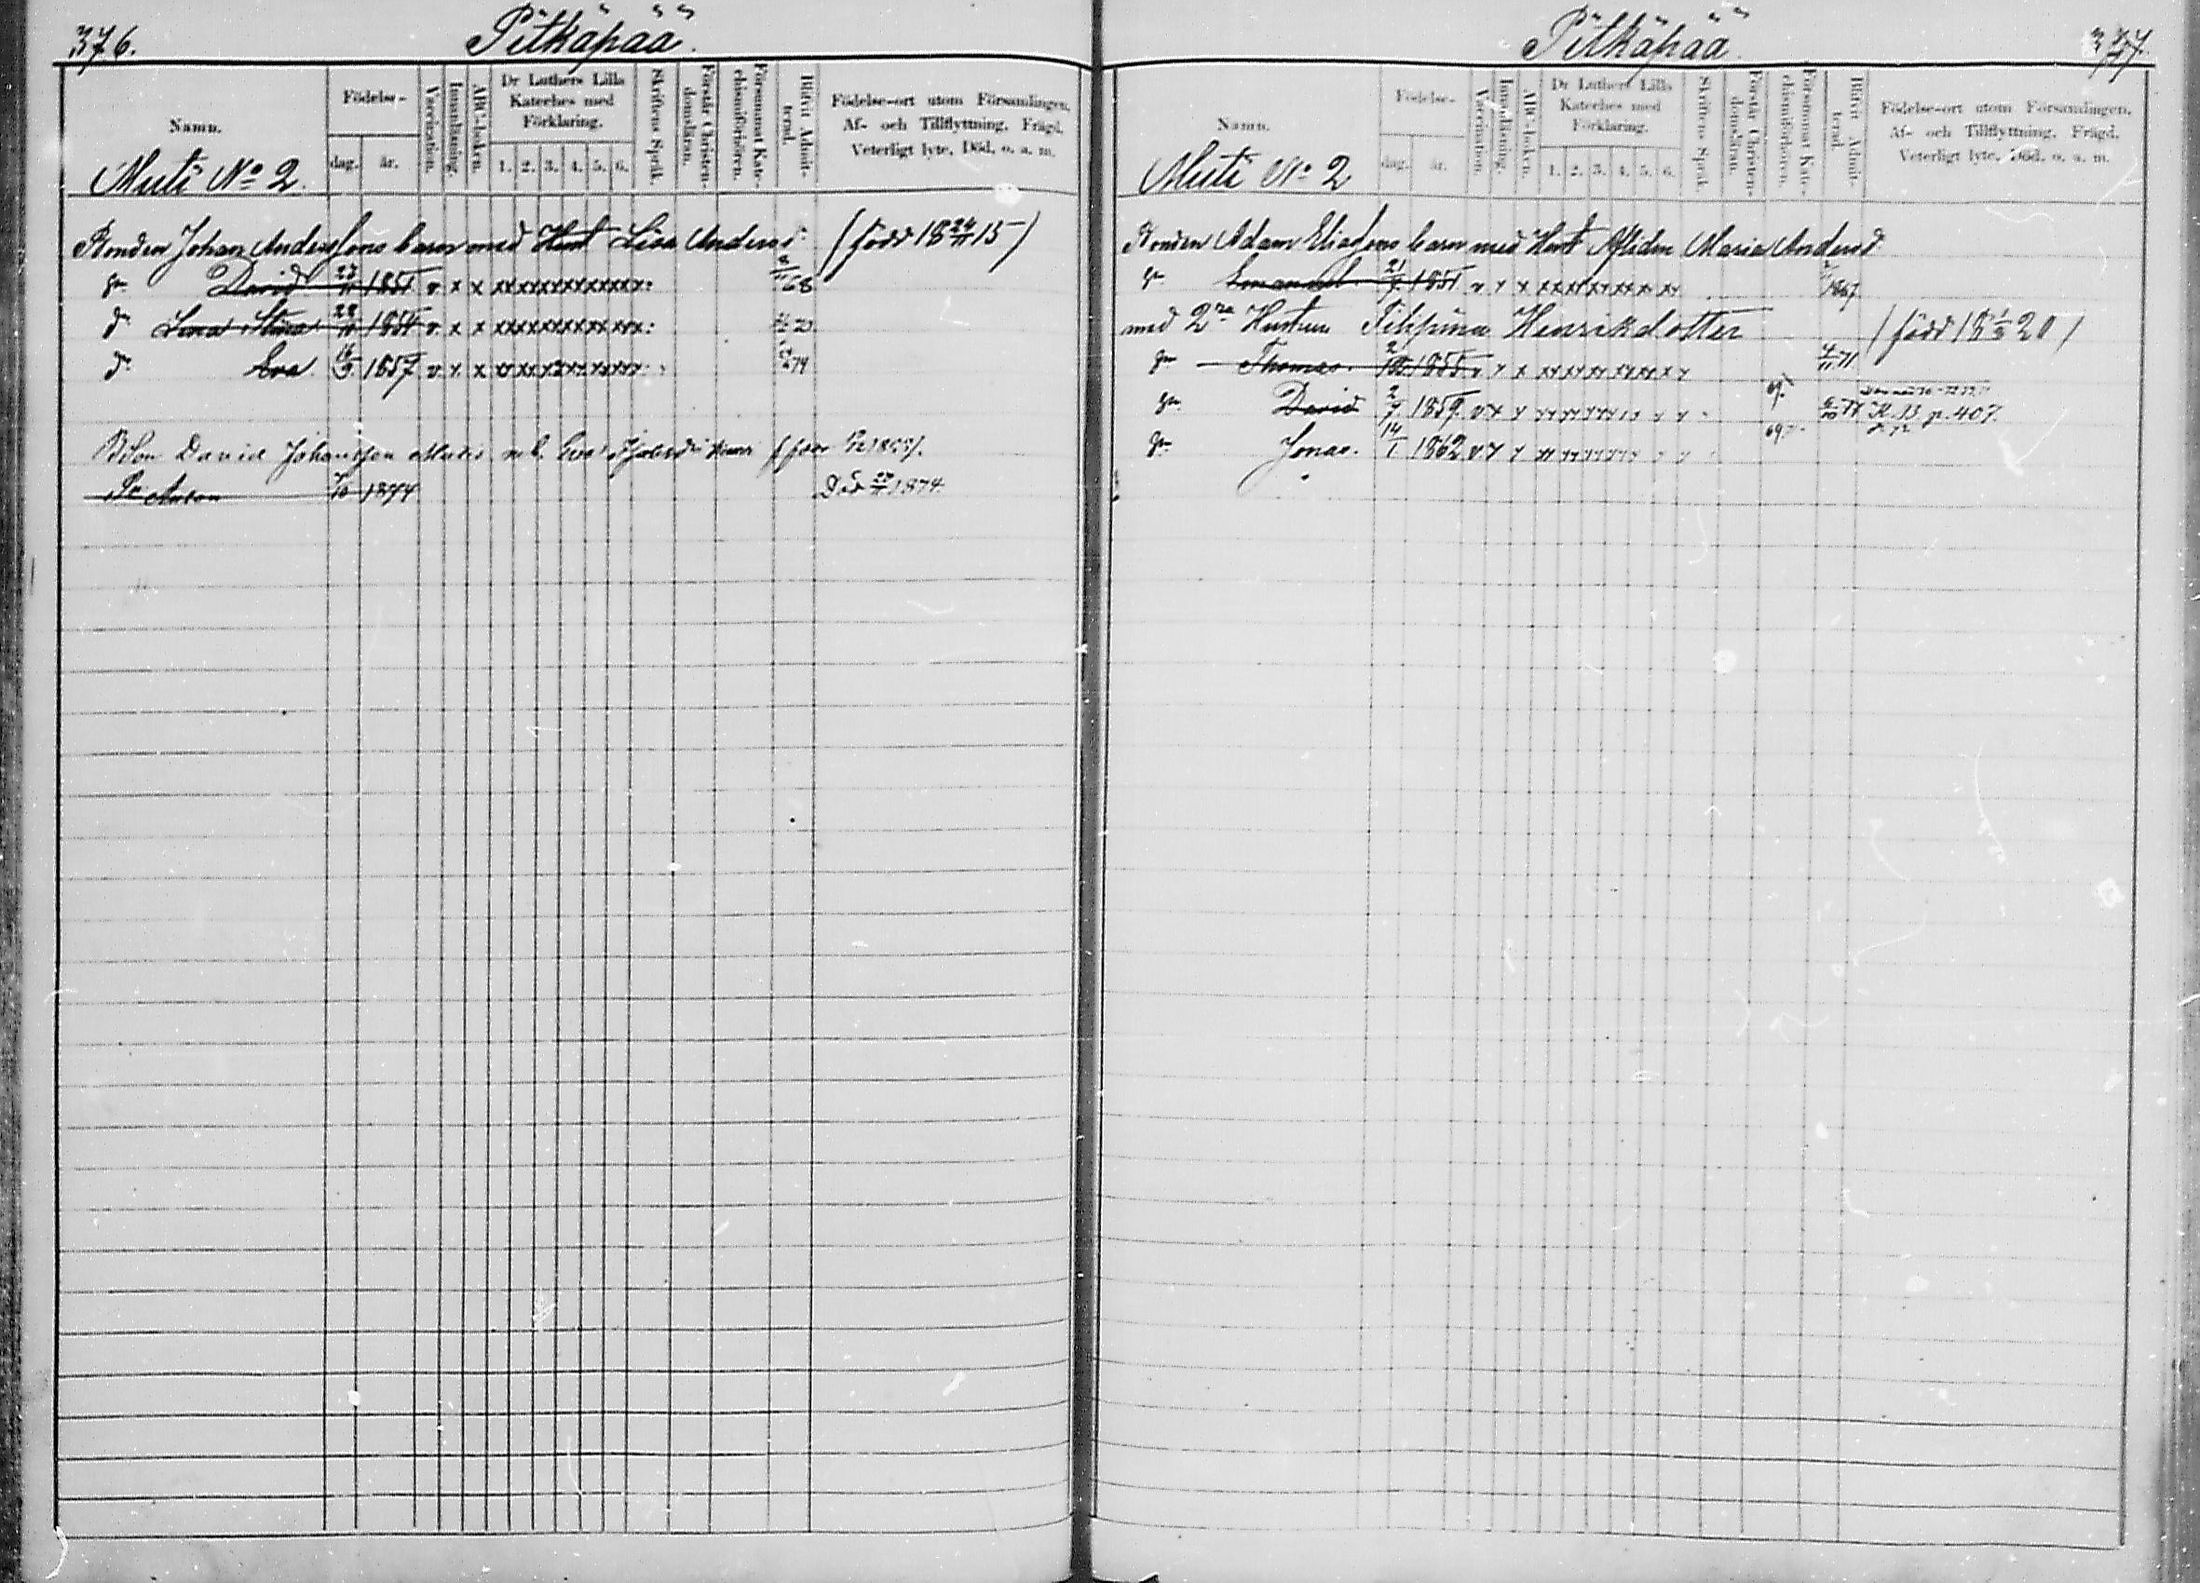 376.
Pitkäpää.
Namn.
Födelse-
dag.
år.
Vaccination.
Innanläsning.
ABC-boken.
Dr Luthers Lilla Kateches med Förklaring.
1. 2. 3. 4. 5. 6.
Skriftens Språk.
Förstår Christendomsläran.
Försummat Katechismiförhören.
Blifvit Admitterad.
Födelse-ort utom Församlingen.
Af- och Tillflyttning. Frägd.
Veterligt lyte. Död. o. a. m.
Muti No 2.
Bonden Johan Anderssons barn med Hust Lisa Andersd: (född 18 24/11 15)
Gn David 23/11 1851 v. x x xx xx xx xx xx xx 68
Dr Lena Stina 28/10 1854 v. x x xx xx xx xx xx xx
Dr Eva 1857 v. x. x xx xx xx xx xx xx 74
David Johansson
Anton 1874 Död 1874.
Pitkäpää.
377.
Namn.
Födelse-
dag.
år.
Vaccination.
Innanläsning.
ABC-boken.
Dr Luthers Lilla Kateches med Förklaring.
1. 2. 3. 4. 5. 6.
Skriftens Språk.
Förstår Christendomsläran.
Försummat Katechismiförhören.
Blifvit Admitterad.
Födelse-ort utom Församlingen.
Af- och Tillflyttning. Frägd.
Veterligt lyte. Död. o. a. m.
Muti No 2
Bonden Adam Eliassons barn med Hust Afliden Maria Andersd
Gn Emanuel. 21/9 1851 v x x xx xx xx xx xx xx 1867
med 2ra Hustrun Filippina Henriksdotter (född 18 1/3 20)
Gn Thomas. 1855 v x x xx xx xx xx xx x x 4/11 71
Gn David 2/7 1859. v x x 69. K. B. p. 407.
Gn Jonas. 14/1 1862 v. x x 69.